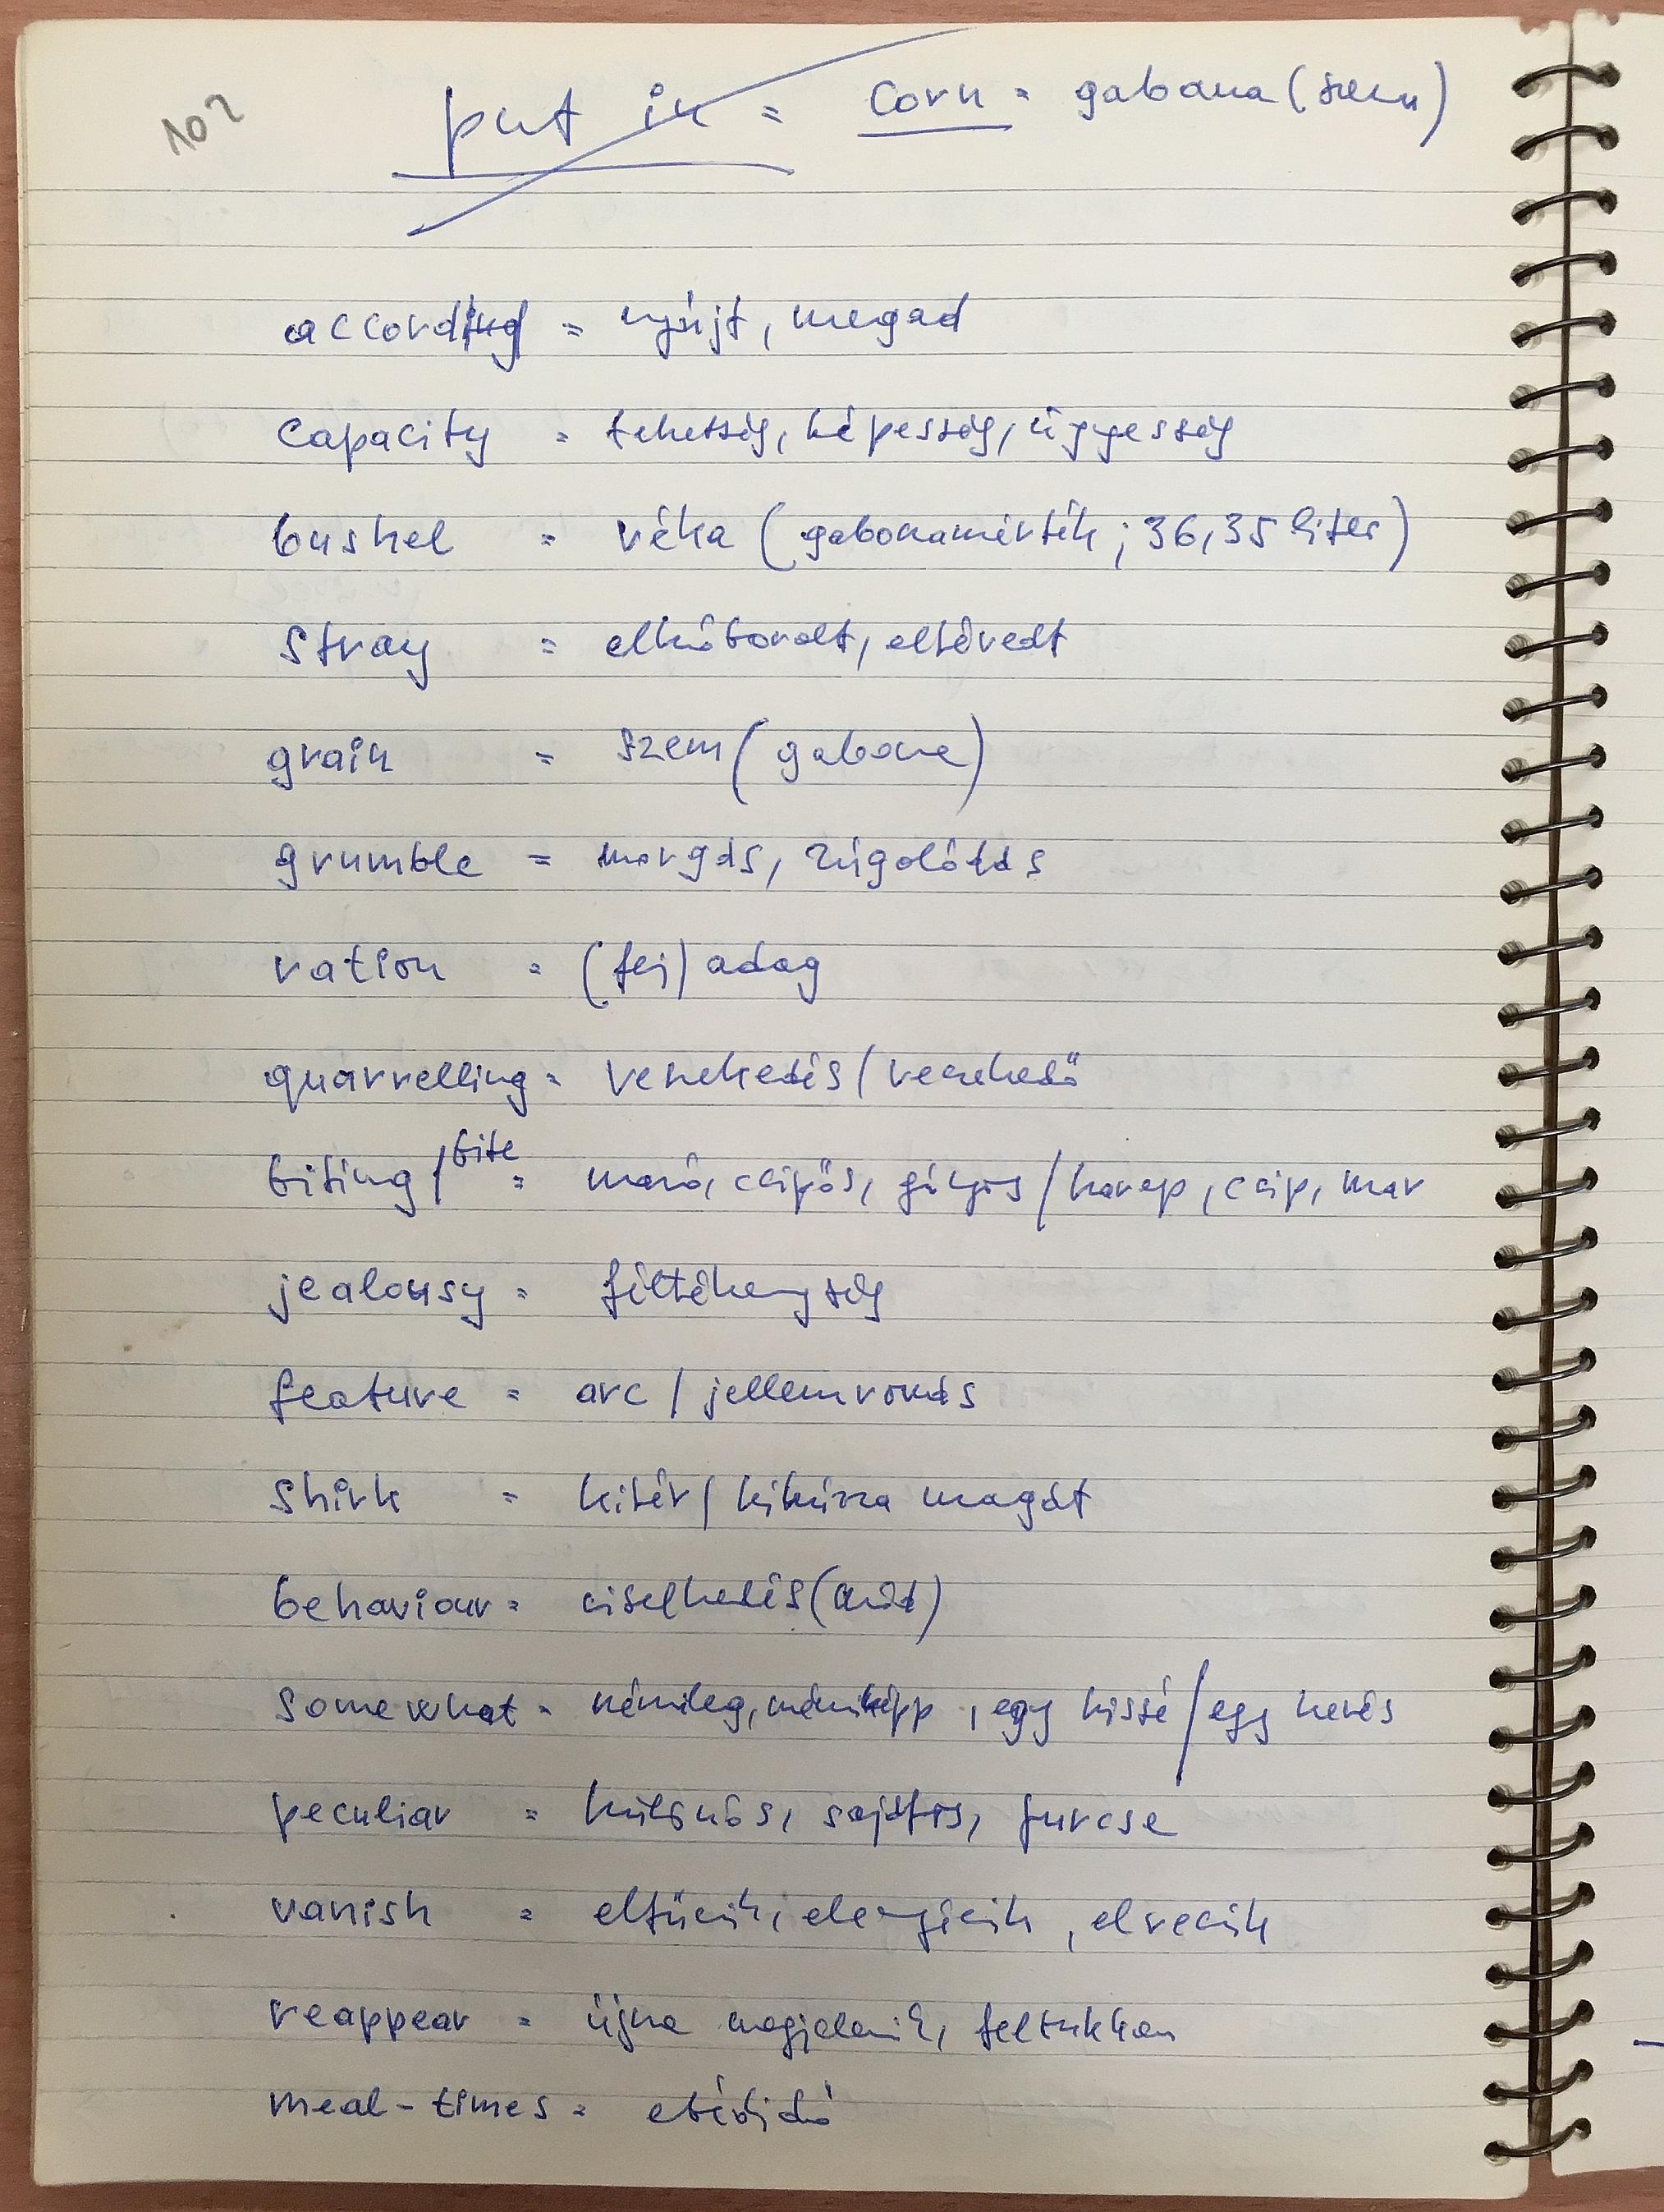 102
put in = corn = gabona (szem)
according = nyújt, megad
capacity = tehetség, képesség, ügyesség
bushel = véka (gabonamérték; 36,35 liter)
stray = elkóborolt, eltévedt
grain = szem (gabona)
grumble = morgás, zúgolódás
ration = (fej) adag
quarrelling = veszekedés / veszekedő
biting / bite = maró, csípős, gúnyos / harap, csíp, mar
jealousy = féltékenység
feature = arc / jellemvonás
shirk = kitér / kihúzza magát
behaviour = viselkedés (mód)
somewhat = némileg, némiképp, egy kissé / egy kevés
peculiar = különös, sajátos, furcsa
vanish = eltűnik, elenyészik, elveszik
reappear = újra megjelenik, feltűnik
meal-times = ebédidő